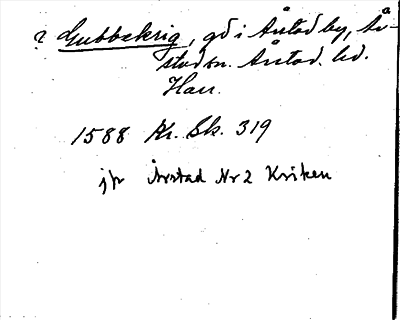 ? Gubbekrig, gd i Årstad by, År-
stad sn. Årstad hd.
Hall.
1588 Kr. Sk. 319
jfr Årstad Nr 2 Kriken